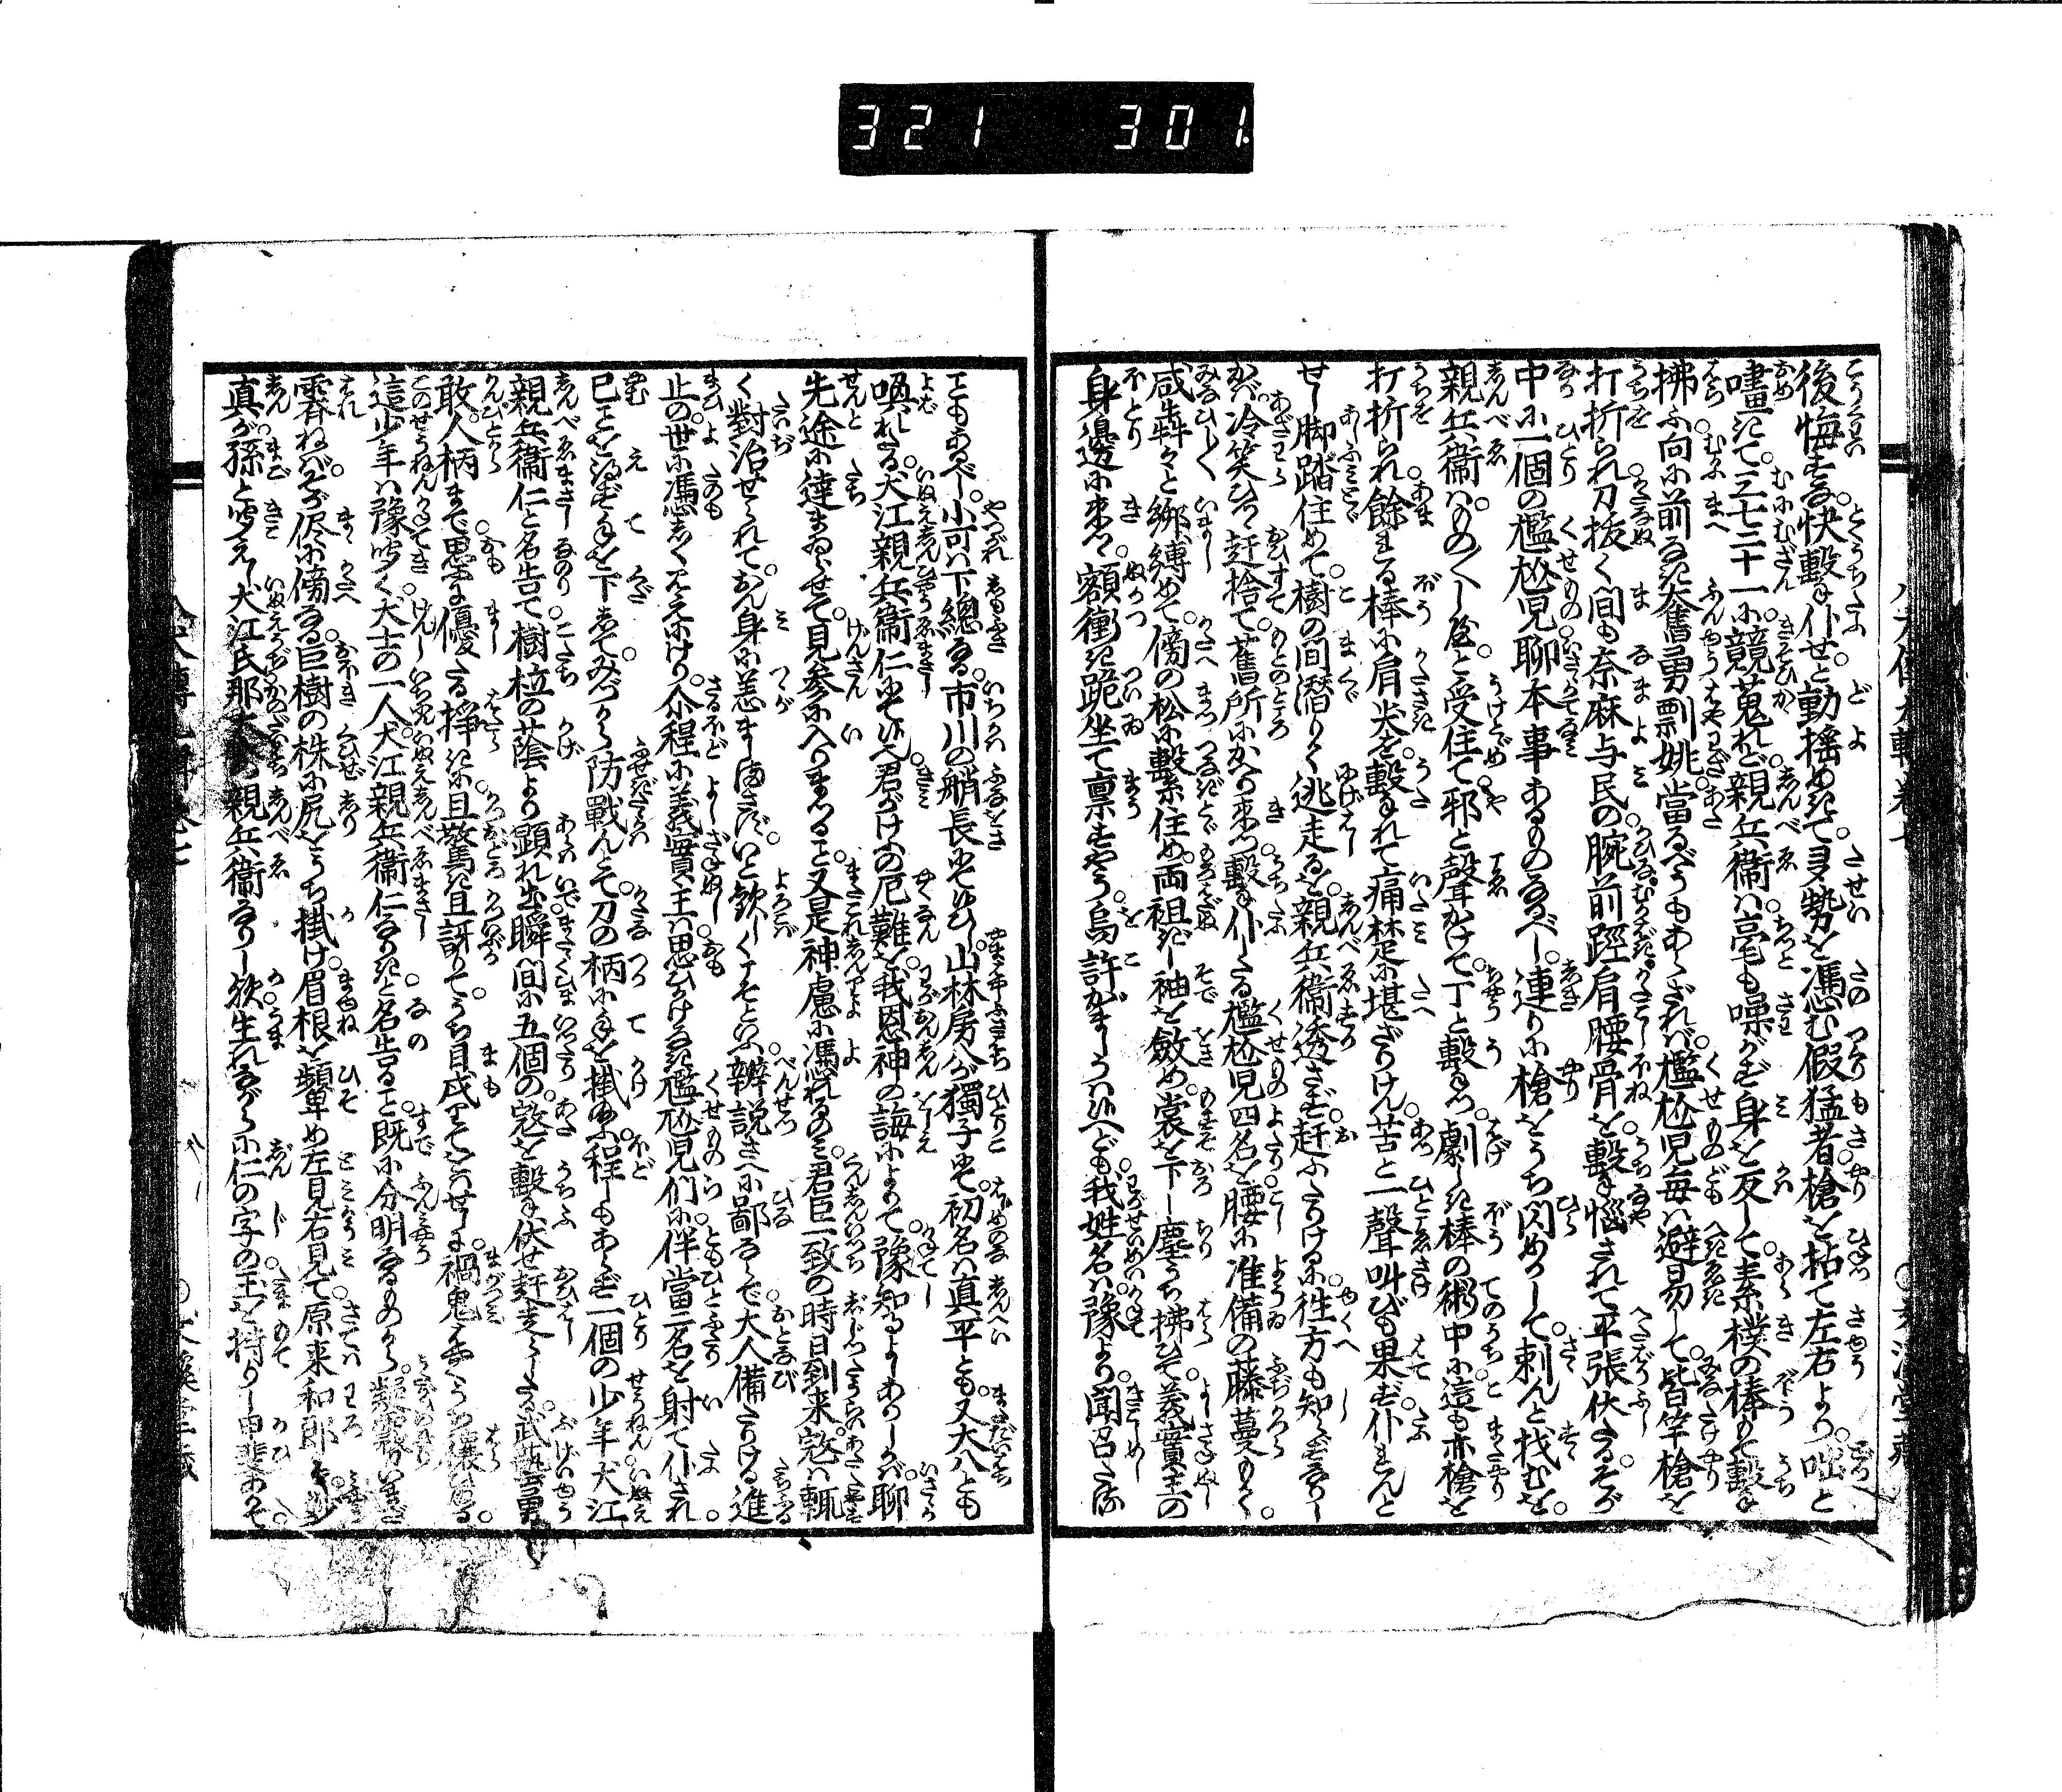 321 301
後悔すな。快撃て仆せと。動揺めきて。多勢を馮む假猛者。槍を拈て左右より。咄と
嚄きて。三七二十一に。競蒐れど親兵衛は。毫も噪がず身を反して。素樸の棒もて撃
拂ふ。向に前る犬奮勇剽姚。當るべうもあらざれば。檻尬児毎は避易して。皆竿槍を
打折られ。刀抜く間も奈麻与民の。腕前脛肩腰骨を。撃れ惱されて平張伏たる。そが
中に一個の檻尬児。聊本事あるものなるべし。連りに槍をうち閃めかして。刺んと找むを。
親兵衛は。ものものしやと受住て。邪と聲かけて。丁と撃つ。劇しき棒の術中に。這も亦槍を
打折られ。餘れる棒に肩尖を。撃れて痛楚に堪ざりけん。苦と一聲叫びも果ず仆れんと
せし。脚踏住めて。樹の間潛りて逃走るを。親兵衛透さず。赶ふたりけるに。徃方も知らずなりし
かば。冷笑ひつつ赶捨て。舊の所にかへり来つ。撃仆したる檻尬児四名を。腰に准備の藤蔓もて。
咸犇々と綁縛めて。傍の松に繋住め。両袒ぎし袖を斂め。裳を下し塵うち拂ひて。義實主の
身邊に来つ。額衝き跪坐て稟すやう。烏許がましうは候へども。我姓名は。豫より。聞召たる
こともあるべし。小可は下總なる。市川の艄長にて候ひし。山林房八が獨子にて。初名は真平とも。又大八とも
喚れたる。犬江親兵衛仁に候へ。君がけふの厄難を。我恩神の誨によりて。豫知るよしありしかば。聊
先途に達まゐらせて。見参に入りまつること。又是神慮に馮れるのみ。君臣一致の時日到来。寇は輙
く對治せられて。おん身に恙ましまさず。いと歓しくこそといふ。辨説さへに鄙ならで。大人備たりける進
止の。世に馮しく見えにけり。介程に義實主は。思ひがけなき檻尬児們に。伴當二名を射て仆され。
已ことを得ず手を下して。みづから防戰んとて。刀の柄に手を掛給ふ。程しもあらず一個の少年。犬江
親兵衛仁と名告て。樹柆の蔭より顕れ出。瞬間に五個の。寇を撃伏せ赶走らしたる。武藝勇
敢。人柄まで。思ふに優たる挣きに。且驚き且訝りて。うち目戍りてをはせしに。禍鬼はやうやく攘ひたる。
這少年は豫聞く。犬士の一人。犬江親兵衛仁なりきと名告ること。既に分明なるものから。疑霧いまだ
霽ねば。そが侭に傍なる。巨樹の株に尻をうち掛け。眉根を顰め左見右見て。原来和郎は
真が孫と聞えし。犬江氏那 親兵衛なりし歟。生れながらに仁の字の。玉を持りし甲斐ありて。